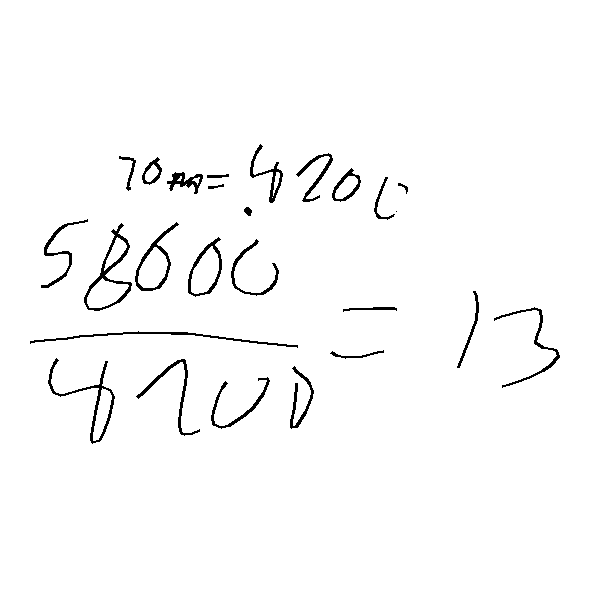 70m = 4200
58000
4200
= 13